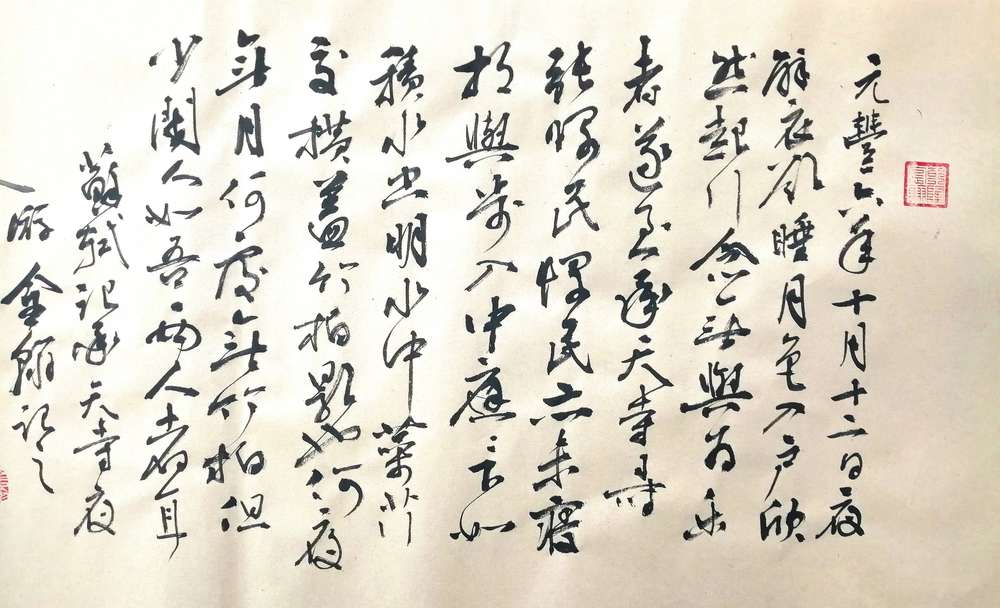 元豐六年十月十二日夜
解衣欲睡月色入户欣
然起行念無與為樂
者遂至承天寺尋
張懷民懷民亦未寢
相與步入中庭庭下如
積水空明水中藻荇
交橫蓋竹柏影也何夜
無月何處無竹柏但
少閑人如吾兩人者耳
蘇軾記承天寺夜
游 金 記之